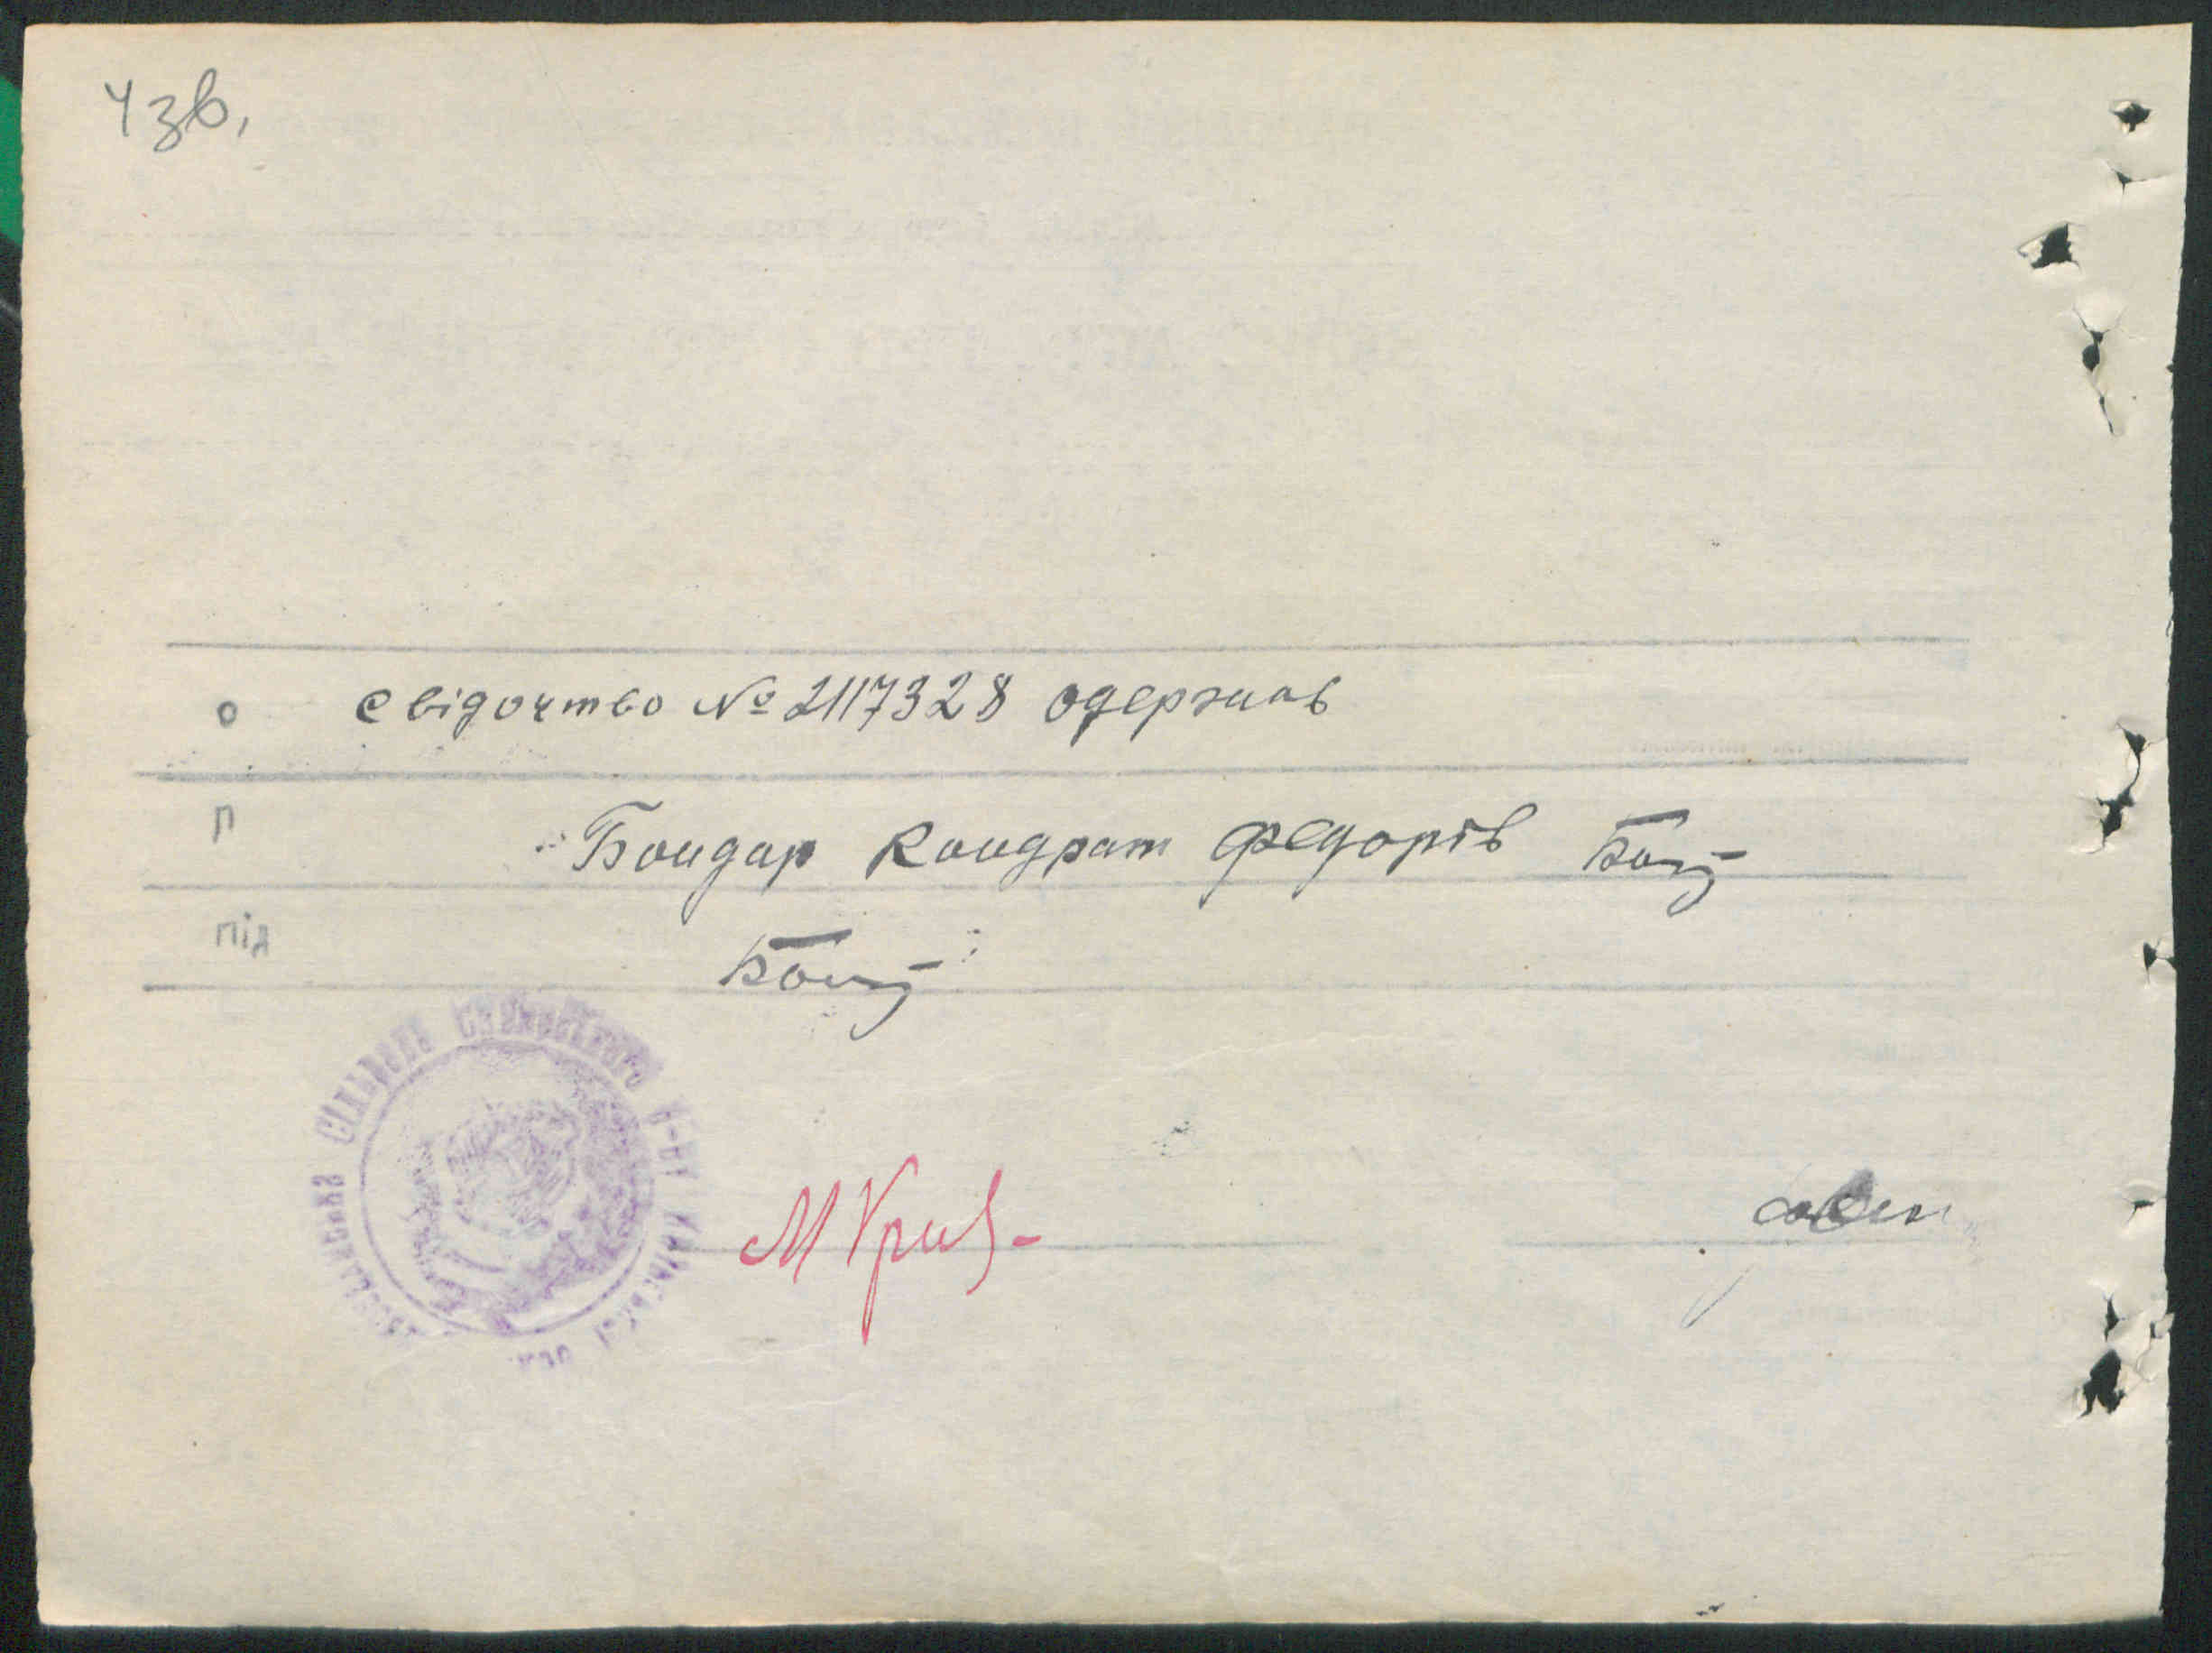 4зв,
о свідочтво № 2117328 одержав
П Бондар Кондрат Федорів Бонд
під Бонд
Сільрада
М Крив